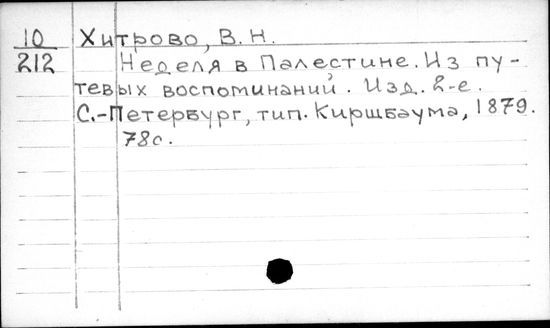 10 Хитрово, В. Н.
212 Неделя в Палестине. Из пу-
тевых воспоминаний. Изд. 2-е.
С.-Петербург, тип. Киршбаума, 1879.
78с.